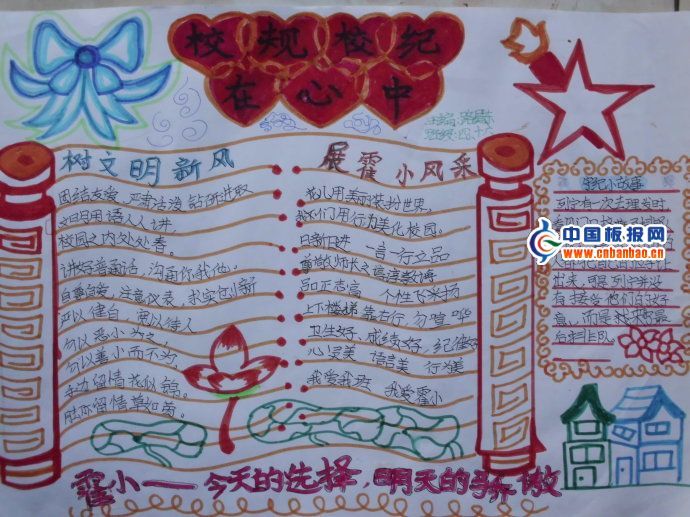 校规校纪
在心中
树文明新风
团结友爱,严谨活泼 钻研进取
文明用语人人讲,
校园之内处处春。
讲好普通话,沟通你我他。
自尊自爱,注意仪表,求实创新
严以律自,宽以待人
勿以恶小为之,
勿以善小而不为。
手边留情花似锦。
脚际留情草如茵。
展霍小风采
花儿用美丽装扮世界,
我们用行为美化校园。
日新日进 一言一行立品
尊敬师长之谆谆教诲
品正志高 个性飞采扬
上下楼梯靠右行,勿喧哗
卫生好、成绩好,纪律好
心灵美 语言美 行为美
我爱我班 我爱霍小
校纪小故事
列宁有一次去理发时,
中国板报网
www.cnbanbao.cn
出来,可是列宁并没
有接受他们的好
意,而是
霍小——今天的选择,明天的骄傲